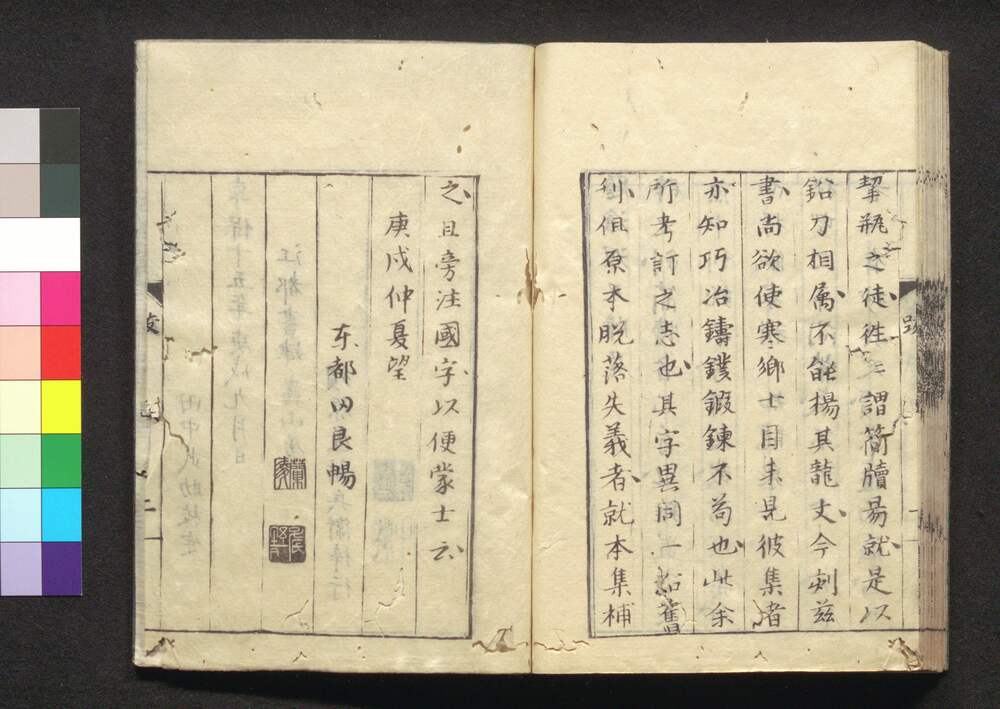 挈瓶之徒徃〻謂简牘易就是以
鉛刀相属不能揚其龍文今刻茲
書尚欲使寒鄉士目未見彼集者
亦知巧冶鑄鏷鍜鍊不苟也此余
所考訂之志也其字異同一沿舊
刊但原本脱落失義者就本集補
之且旁注國字以便蒙士云
庚戌仲夏望
東都田良暢